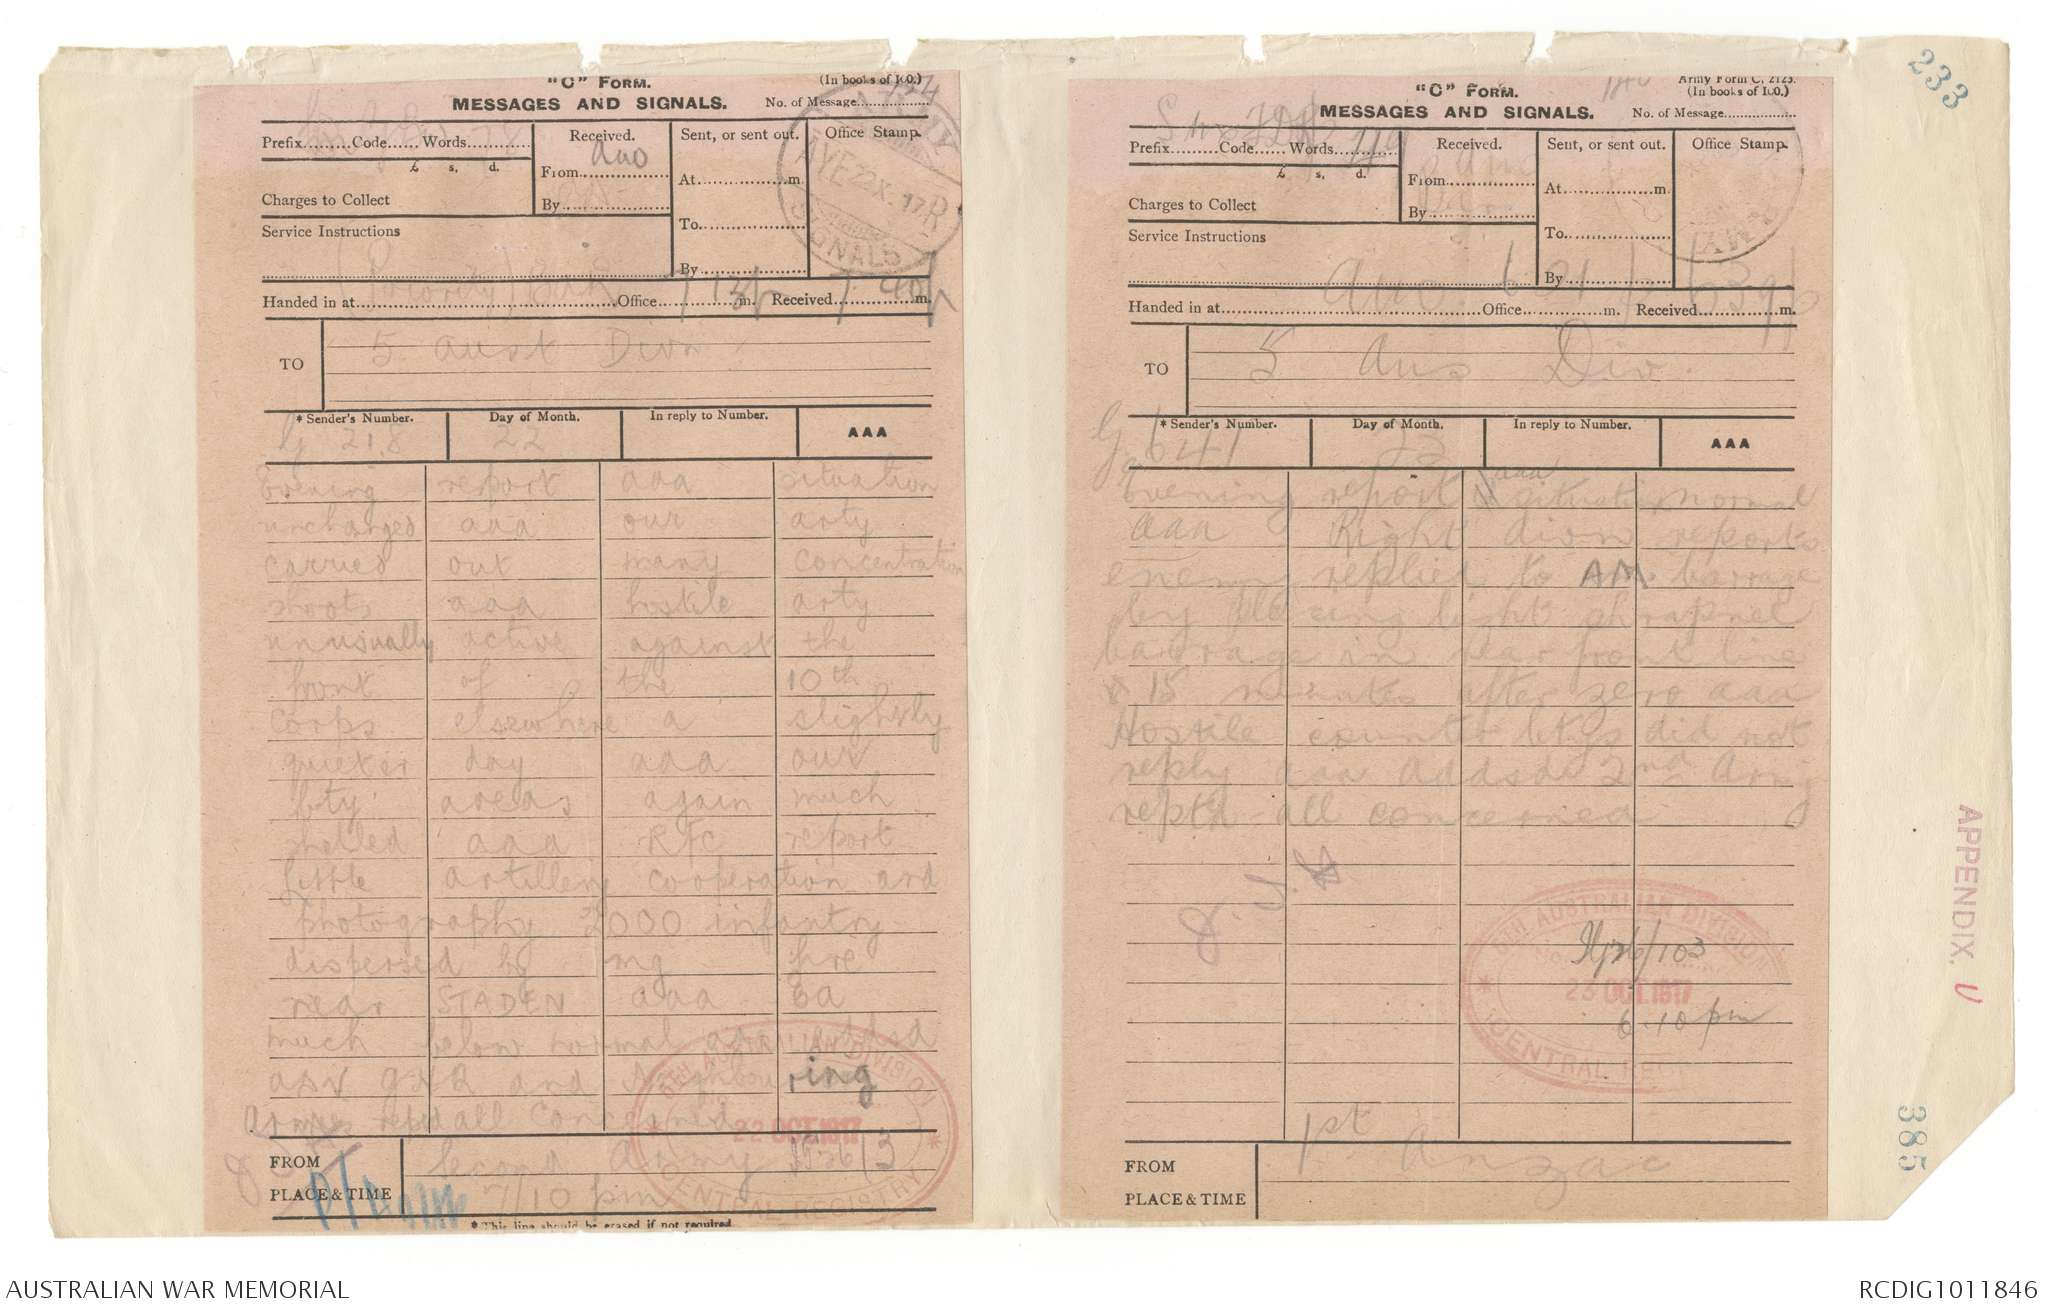 233
"C" FORM.
(In books of 100.)
MESSAGES AND SIGNALS.
No. of Message
Prefix Code Words
Received.
Sent, or sent out.
Office Stamp.
£ s. d.
From Auo
At m.
Charges to Collect
By
Service Instructions
To
By
ARMY
AYE 22.X.17 R
SIGNALS
Priority
Handed in at Office 7 13p m. Received 7 40p m.
TO
5 Aust Divn
* Sender's Number.
Day of Month.
In reply to Number.
AAA
G 218
22
Evening report aaa situation
unchanged aaa our arty
carried out many concentration
shoots aaa hostile arty
unusually active against the
front of the 10th
Corps elsewhere a slightly
quieter day aaa our
bty areas again much
shelled aaa RFC report
little artillery cooperation and
photography 2000 infantry
dispersed by mg fire
near STADEN aaa EA
much below normal aaa addsd
adv GHQ and Neighbouring
Armies reptd all concerned
5TH AUSTRALIAN DIVISION
22 OCT. 1917
CENTRAL REGISTRY
FROM
Second Army
PLACE & TIME
7/10 pm
* This line should be erased if not required.
Army Form C. 2123.
"C" FORM.
(In books of 100.)
MESSAGES AND SIGNALS.
No. of Message
Prefix Code Words
Received.
Sent, or sent out.
Office Stamp.
£ s. d.
From
At m.
Charges to Collect
By
Service Instructions
To
By
ARMY
Handed in at Auo Office 6 21p m. Received 6 39p m.
TO
5 Aus Div
* Sender's Number.
Day of Month.
In reply to Number.
AAA
G 641
23
aaa
Evening report situation normal
aaa Right divn reports
enemy replied to AM barrage
by placing light shrapnel
barrage in rear front line
15 minutes after zero aaa
Hostile counter btys did not
reply aaa addsd 2nd Army
reptd all concerned
5TH AUSTRALIAN DIVISION
23 OCT. 1917
6.10 pm
CENTRAL REGI
FROM
1st Anzac
PLACE & TIME
APPENDIX. U
385
AUSTRALIAN WAR MEMORIAL
RCDIG1011846